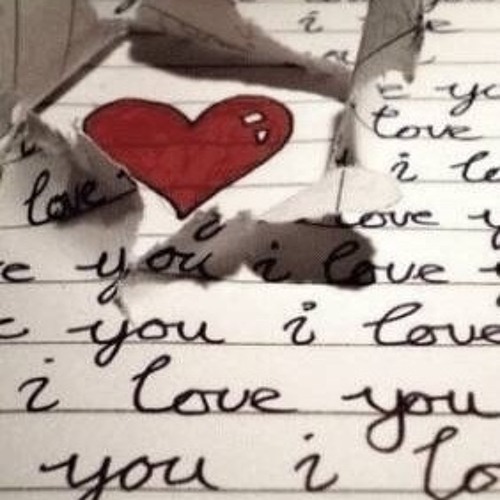 i
= yo
love
love i lo
love y
e you i love y
e you i love
i love you
you i lo